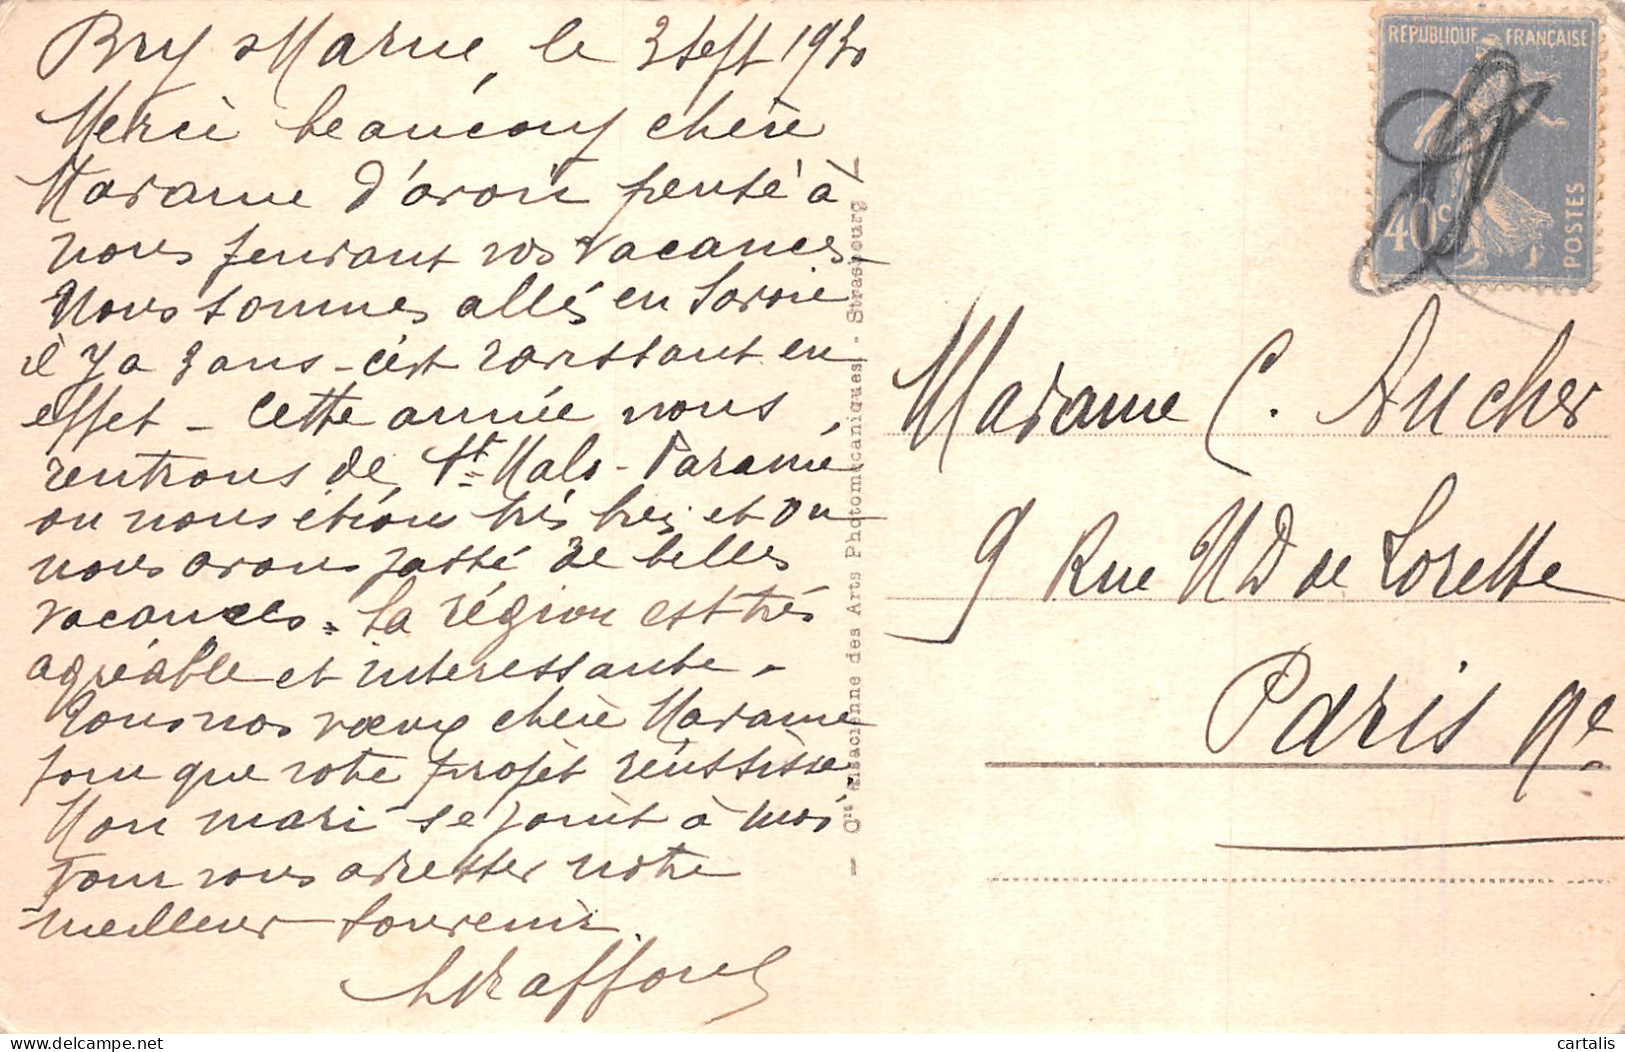 Bry s Marne, le 3 Sept 1930
Merci beaucoup chère
Madame d'avoir pensé à
nous pendant vos vacances
Nous sommes allés en Savoie
il y a 3 ans - c'est
en
effet - Cette année nous
rentrons de St Malo - Paramé
ou nous étions très bien et ou
nous avons passé de belles
vacances. La région est très
agréable et interessante -
Tous nos vœux chère Madame
pour que votre projet réussisse
Mon mari se joint à moi
pour vous adresser notre
meilleur souvenir.
- Cie Alsacienne des Arts Photomécaniques - Strasbourg
REPUBLIQUE FRANÇAISE
40c
POSTES
Madame C. Aucher
9 Rue ND de Lorette
Paris 9e
cartalis